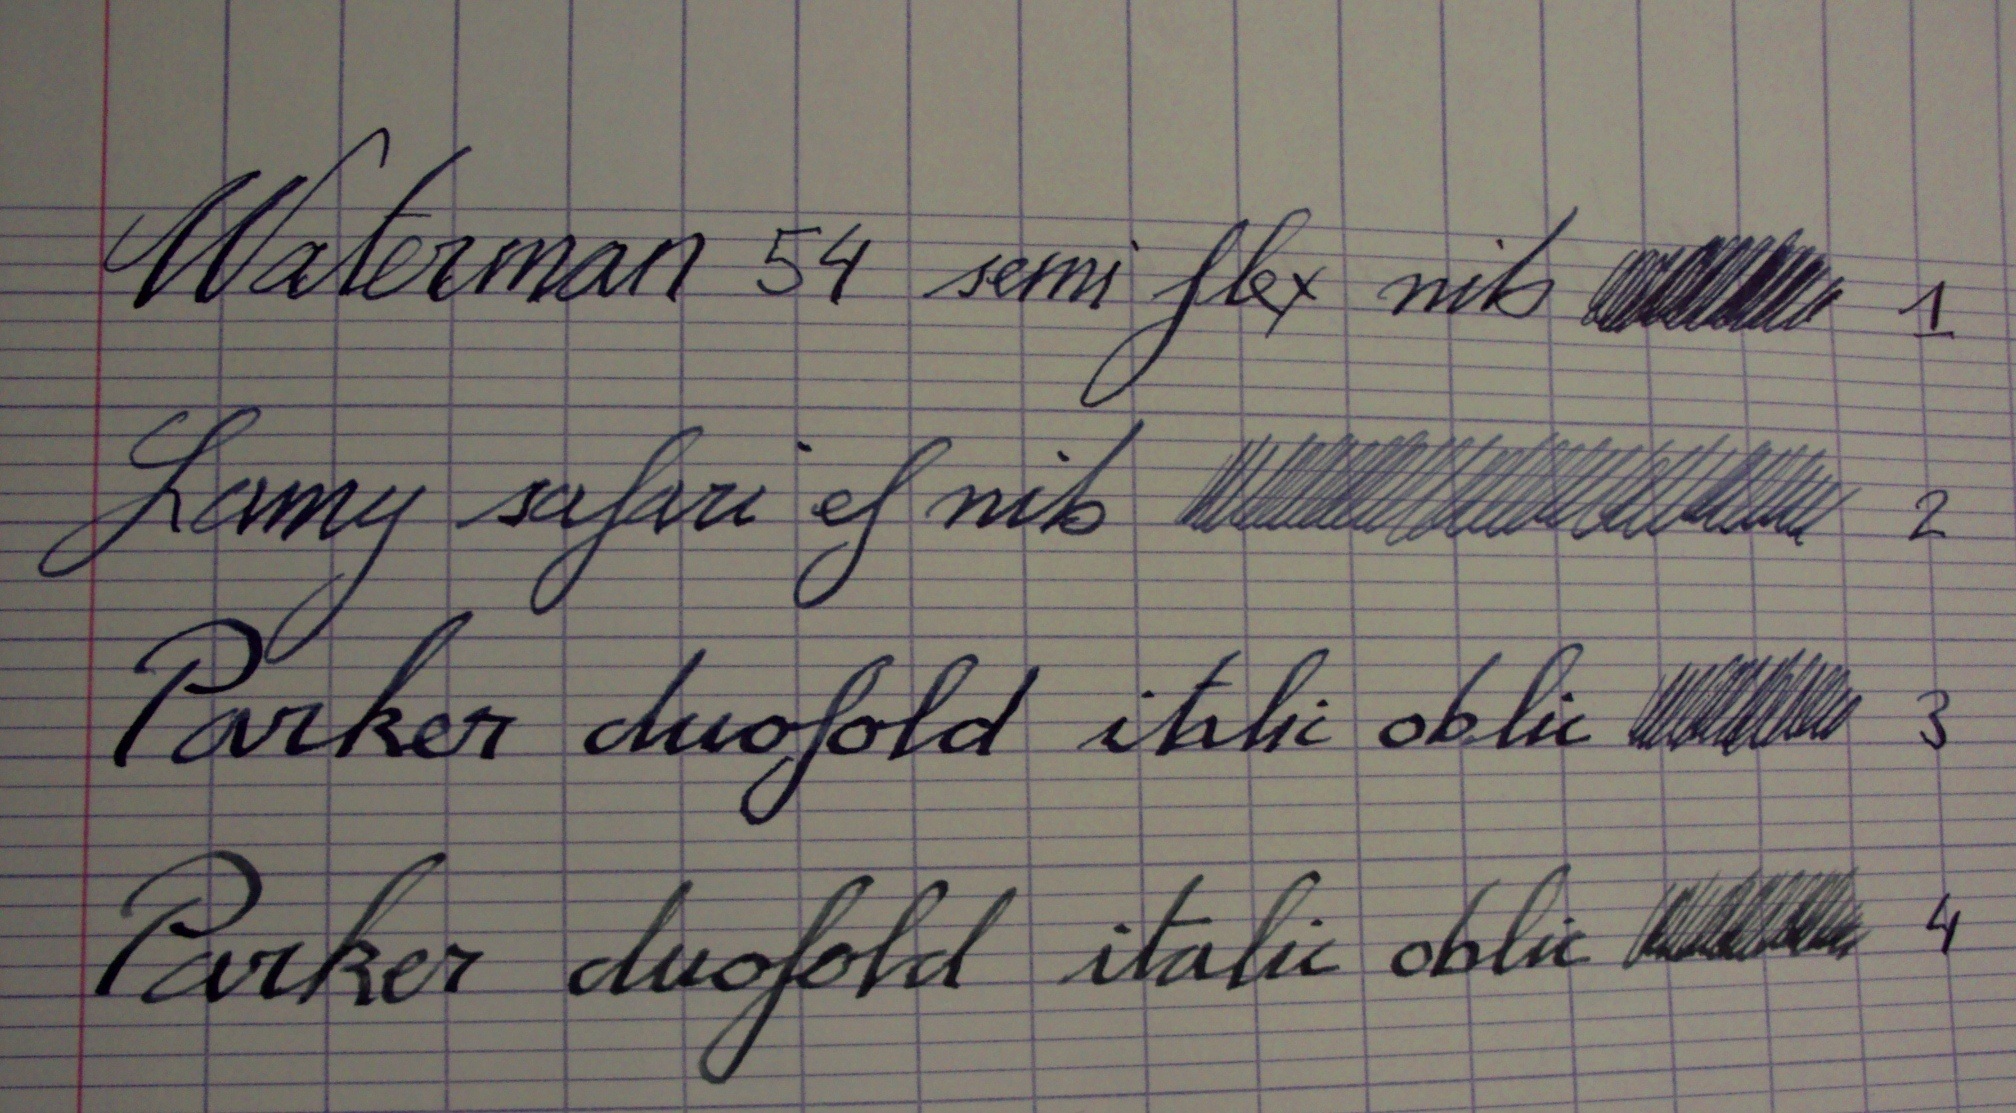 Waterman 54 semi flex nib 1
Lamy safari ef nib 2
Parker duofold italic oblic 3
Parker duofold italic oblic 4